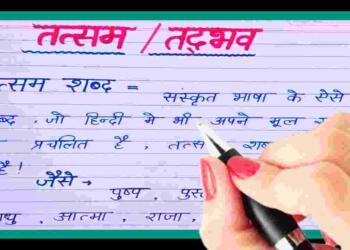 तत्सम / तद्भव
त्सम शब्द = संस्कृत भाषा के ऐसे
ब्द , जो हिन्दी मे भी अपने मूल
प्रचलित है , तत्स शब्द
है !
जैसे → पुष्प , पुस्त
धु , आत्मा , राजा ,